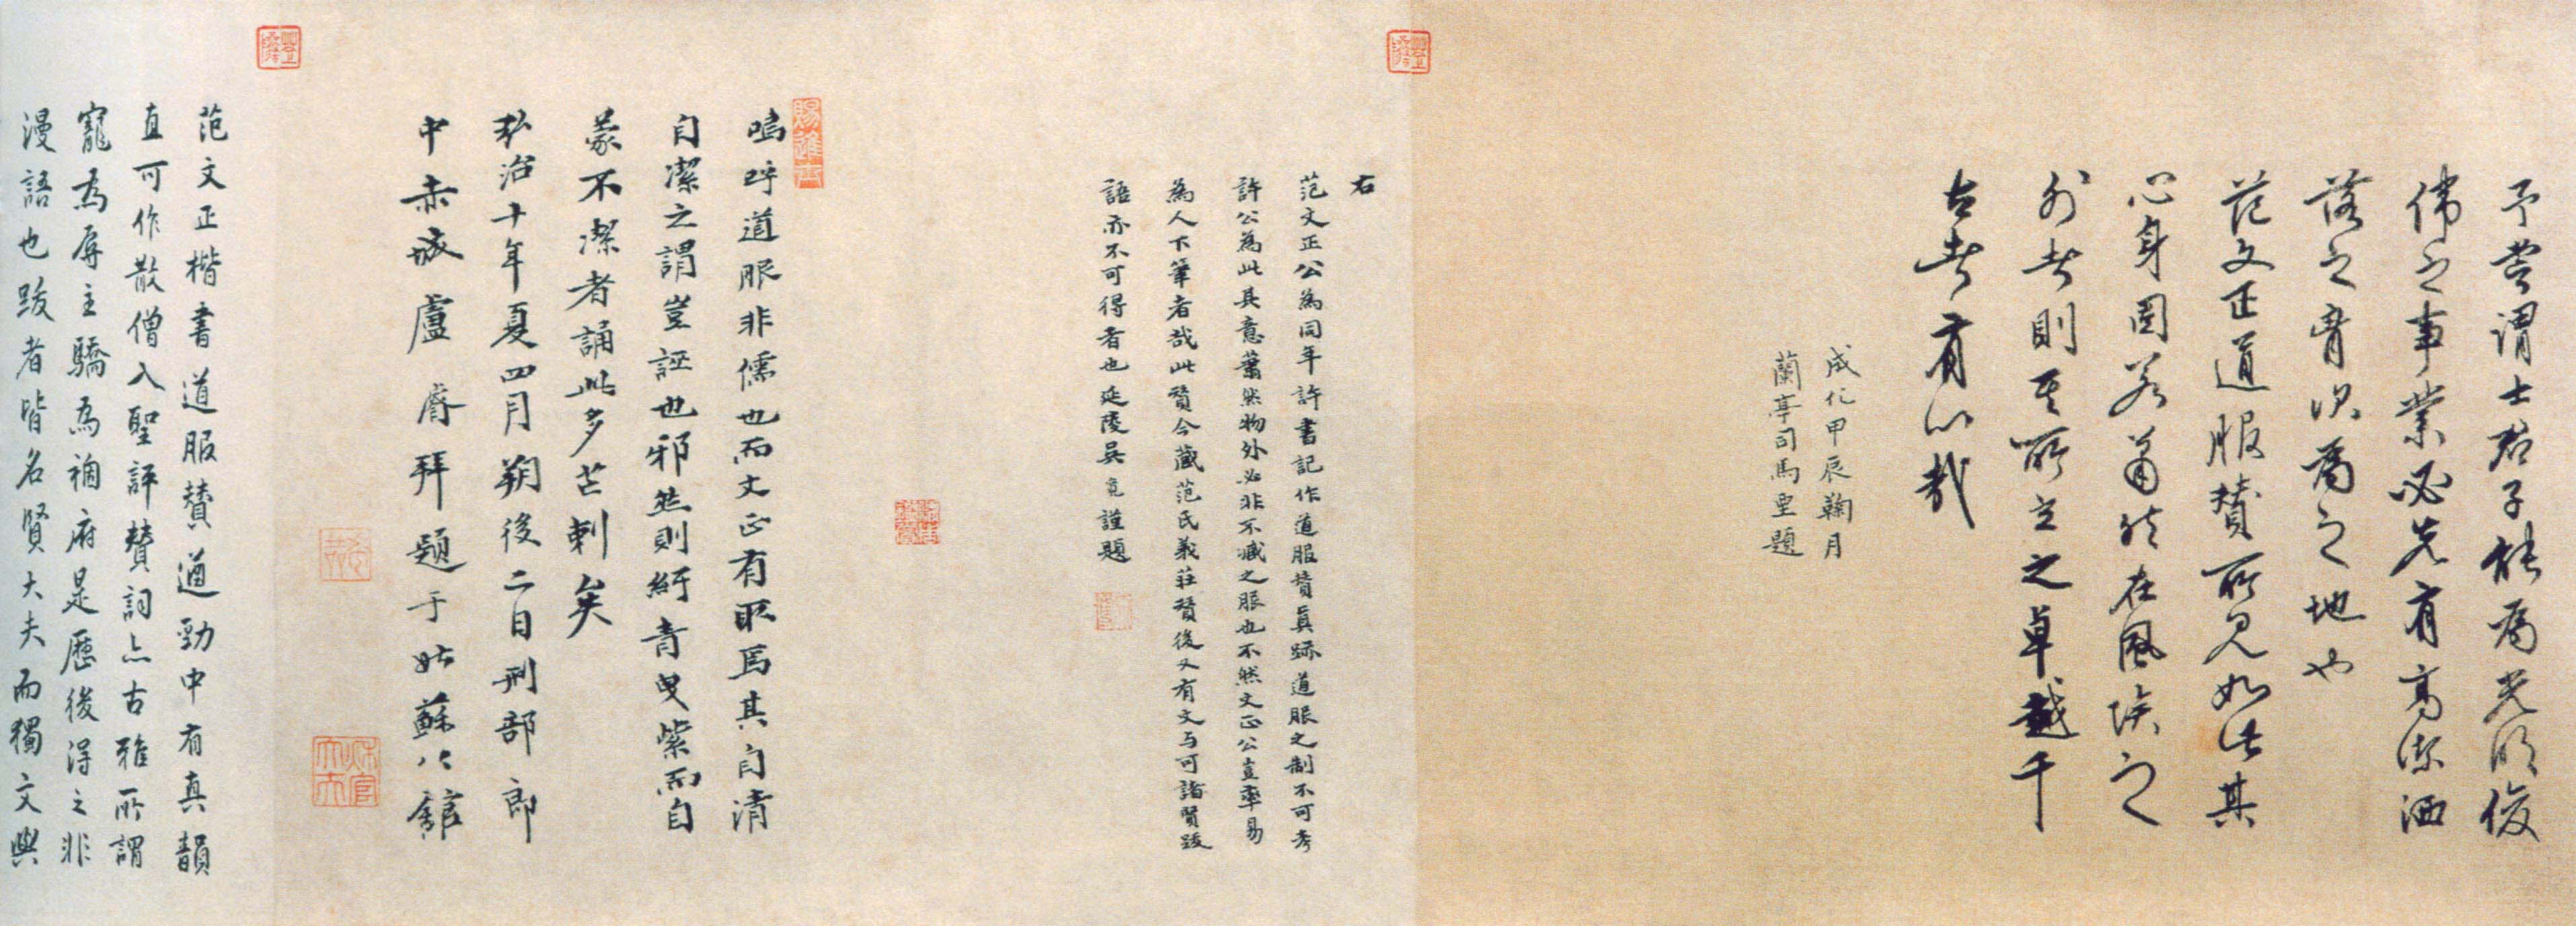 予嘗謂士君子能為光明俊
偉之事業必先有高潔洒
落之胷次為之地也
范文正道服贊所見如此其
心身固若翛然在風埃之
外者則其所立之卓越千
古者有以哉
成化甲辰鞠月
蘭亭司馬垔題
右
范文正公為同年許書記作道服贊真蹟道服之制不可考
許公為此其意蕭然物外必非不臧之服也不然文正公豈率易
為人下筆者哉此贊今藏范氏義莊贊後又有文与可諸賢跋
語亦不可得者也延陵吳寬謹題
嗚呼道服非儒也而文正有取焉其自清
自潔之謂豈誣也邪然則紆青曳紫而自
蒙不潔者誦此多芒刺矣
弘治十年夏四月朔後二日刑部郎
中赤城盧濬拜題于姑蘇公館
范文正楷書道服贊遒勁中有真韻
直可作散僧入聖評贊詞亦古雅所謂
寵為辱主驕為禍府是歷後得之非
漫語也跋者皆名賢大夫而獨文與
賜進士
秋官大夫